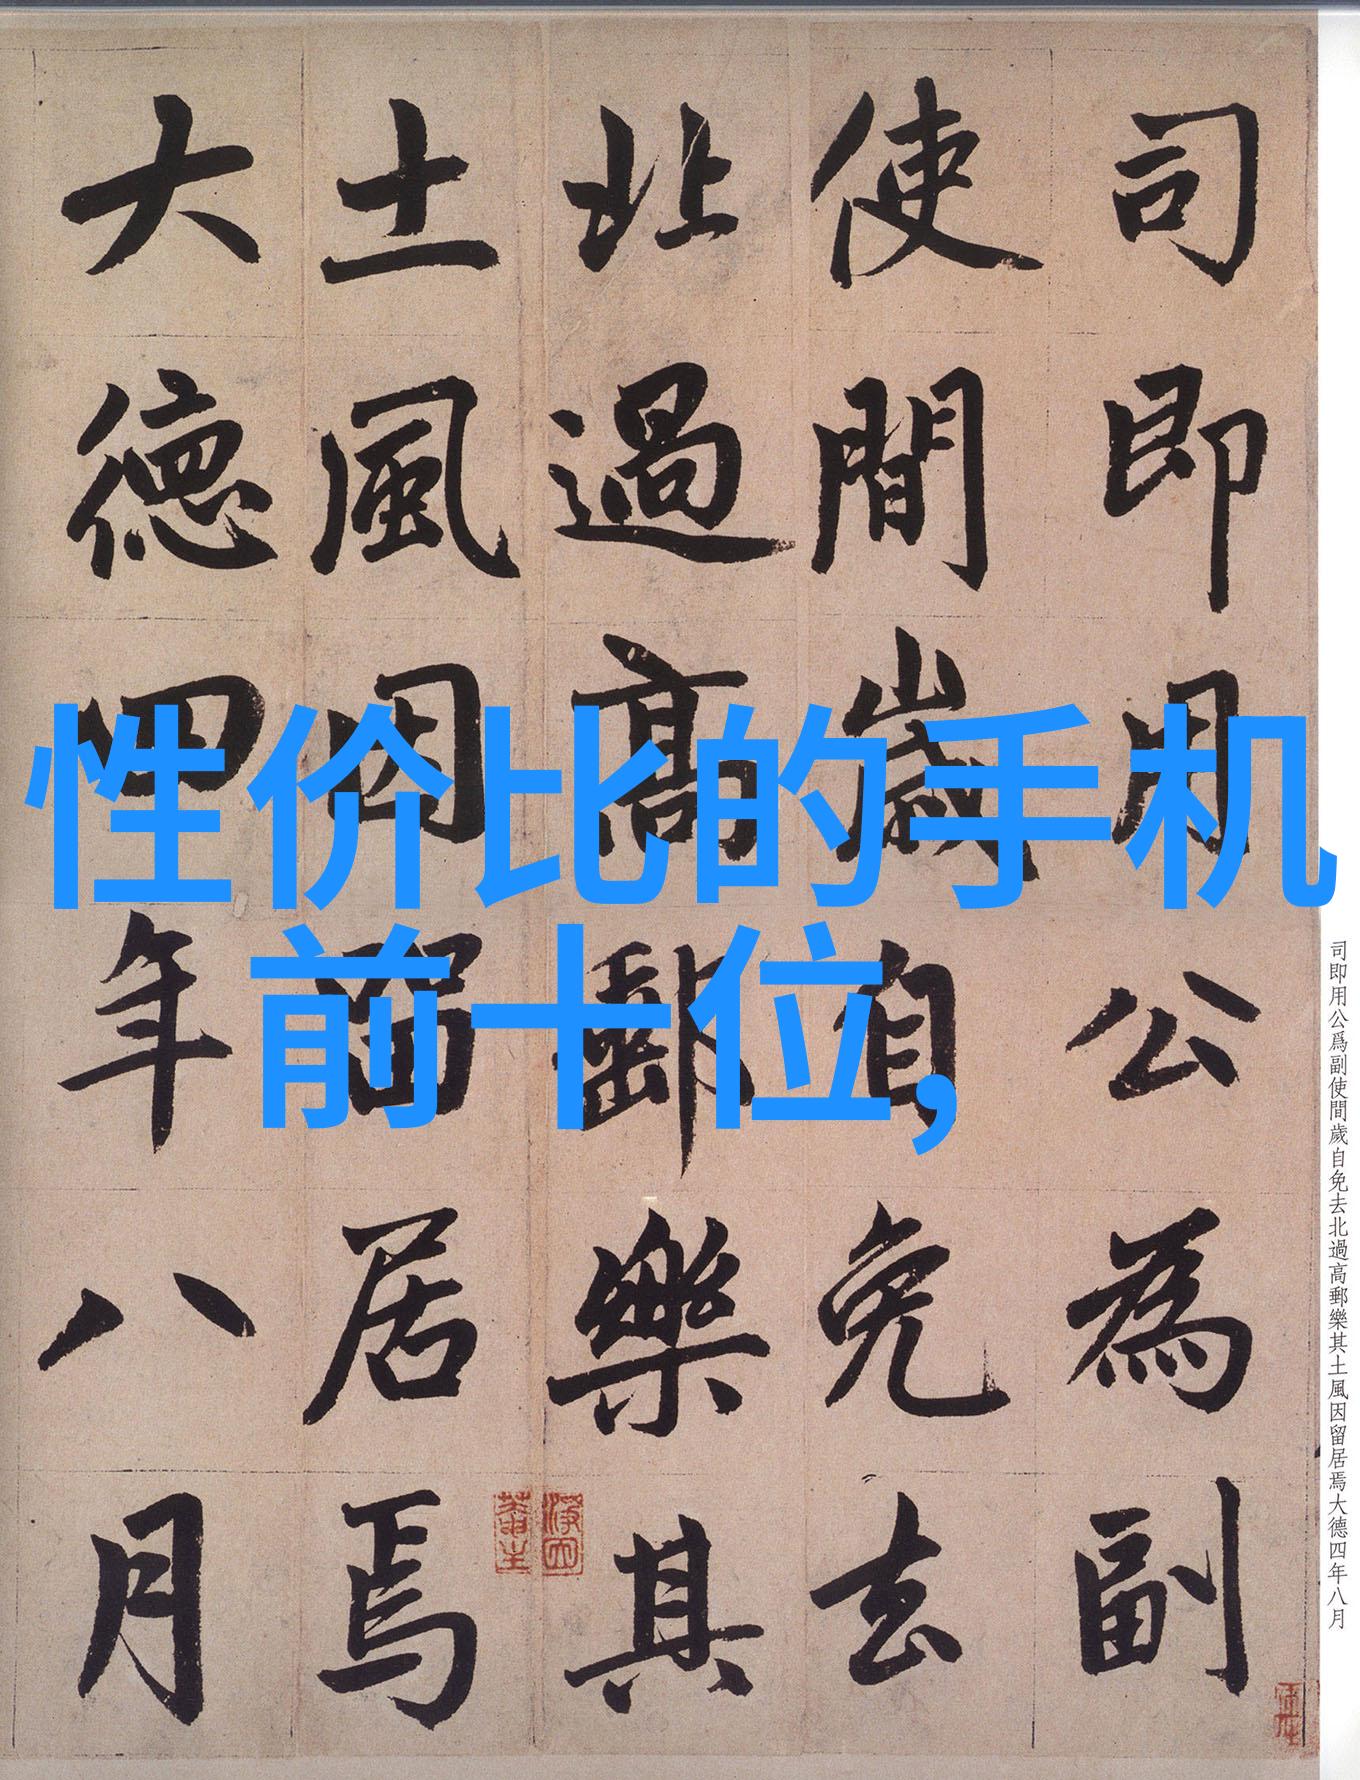 性价比的手机
前十位,
司即用公為副
使間歲自免去
北過高郵樂其
土風因留居焉
大德四年八月
司即用公爲副使間歲自免去北過高郵樂其土風因留居焉大德四年八月